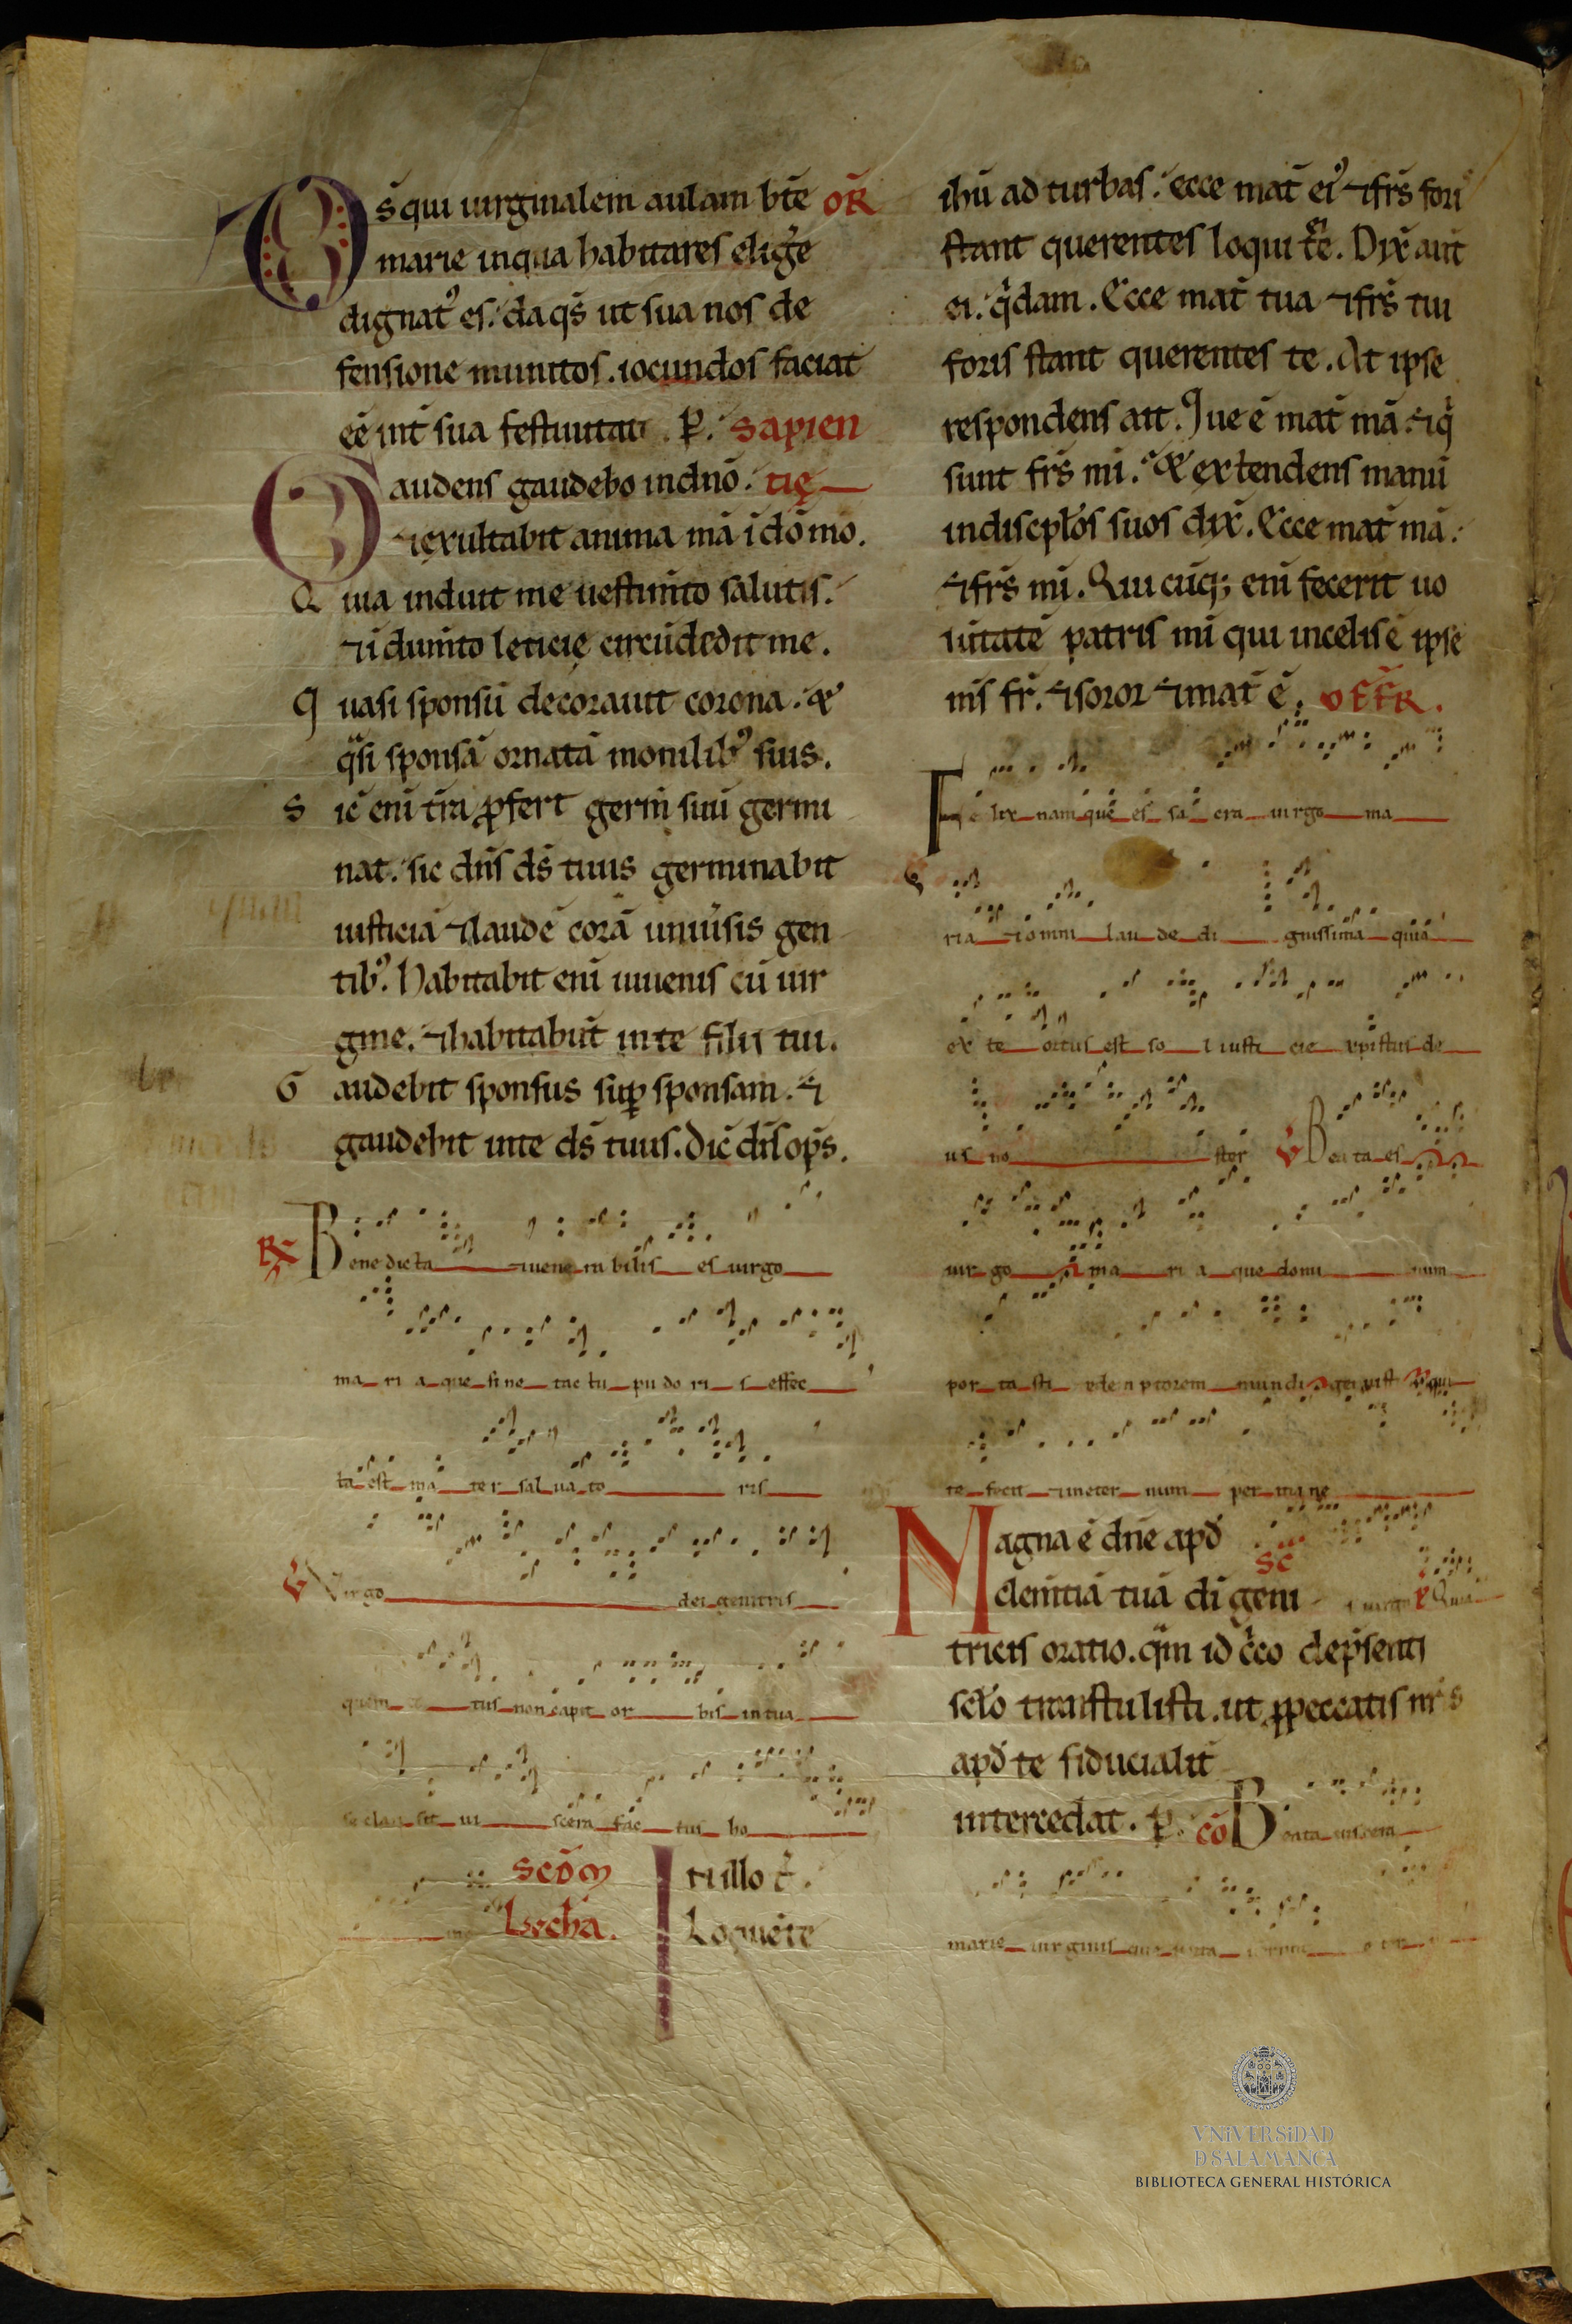 Ds̄ qui uirginalem aulam bt̄e OR̄
marie in qua habitares elig̉e
dignat᾽ es. da qs̄ ut sua nos de
fensione munitos. iocundos faciat
eē int̄ sua festiuitati. P. Sapien
Gaudens gaudebo in dn̄o. tię
⁊ exultabit anima mā ī dō mō.
Quia induit me uestim̄to salutis.
⁊ īdum̄to leticię circūdedit me.
Quasi sponsū decorauit corona. &
qͣsi sponsā ornatā monilib᾽ suis.
Sic̄ enī tr̄a ꝓfert germ̄ suū germi
nat. sic dn̄s ds̄ tuus germinabit
iusticiā ⁊ laudē corā uniu̓sis gen
tib᾽. Habitabit enī iuuenis cū uir
gine. ⁊ habitabūt in te filii tui.
Gaudebit sponsus sup̱ sponsam. ⁊
gaudebit in te ds̄ tuus. Dic̄ dn̄s op̄s.
R Benedicta ⁊ uenerabilis es uirgo
maria que sine tactu pudoris effec
ta est mater saluatoris
V Virgo dei genitris
quem totus non capit orbis in tua
se clausit uiscera factus ho
mo Scd̄m Luchā. In illo t̄. Loquēte
ihū ad turbas. ecce mat̄ ei᾽ ⁊ frs̄ fori
stant querentes loqui t̄e. Dix̄ aūt
ei. qͥdam. Ecce mat̄ tua ⁊ frs̄ tui
foris stant querentes te. At ipse
respondens ait. Que ē mat̄ mā. ⁊ qͥ
sunt frs̄ mī. & extendens manū
in discpl̄os suos dix̄. Ecce mat̄ mā.
⁊ frs̄ mī. Qui cūq; enī fecerit uo
lūtatē patris mī qui in celis ē ipse
ms̄ fr̄. ⁊ soror ⁊ mat̄ ē. OFFR̄.
Felix namque es sacra uirgo ma
ria ⁊ omni laude dignissima quia
ex te ortus est sol iusticie xpistus de
us noster V Beata es
uirgo maria que dominum
portasti redemptorem mundi genuisti qui
te fecit ⁊ in eternum permane
Magna ē dn̄e apd̄ SC̄
clem̄tiā tuā dī geni s uirgo P Quia
tricis oratio. qͣm idc̓co de p̄senti
sclo̅ transtulisti. ut ꝓ peccatis nr̄is
apd̄ te fiducialit̄
intercedat. P. CO̅ Beata uiscera
marie uirginis que